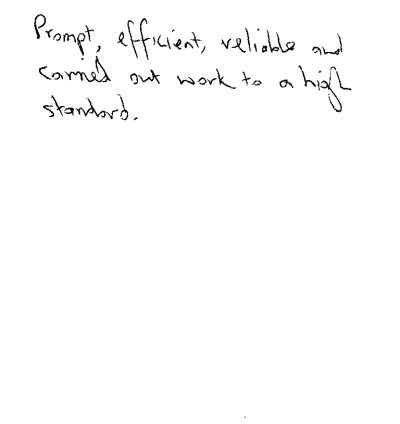 Prompt, efficient, reliable and
carried out work to a high
standard.